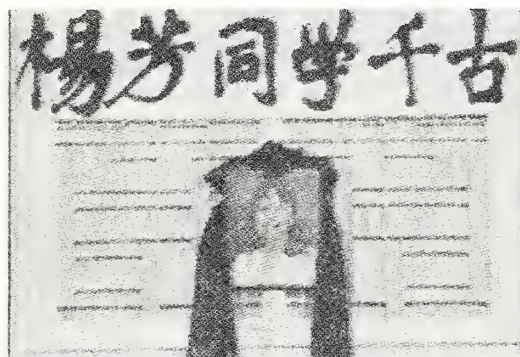 楊芳同学千古